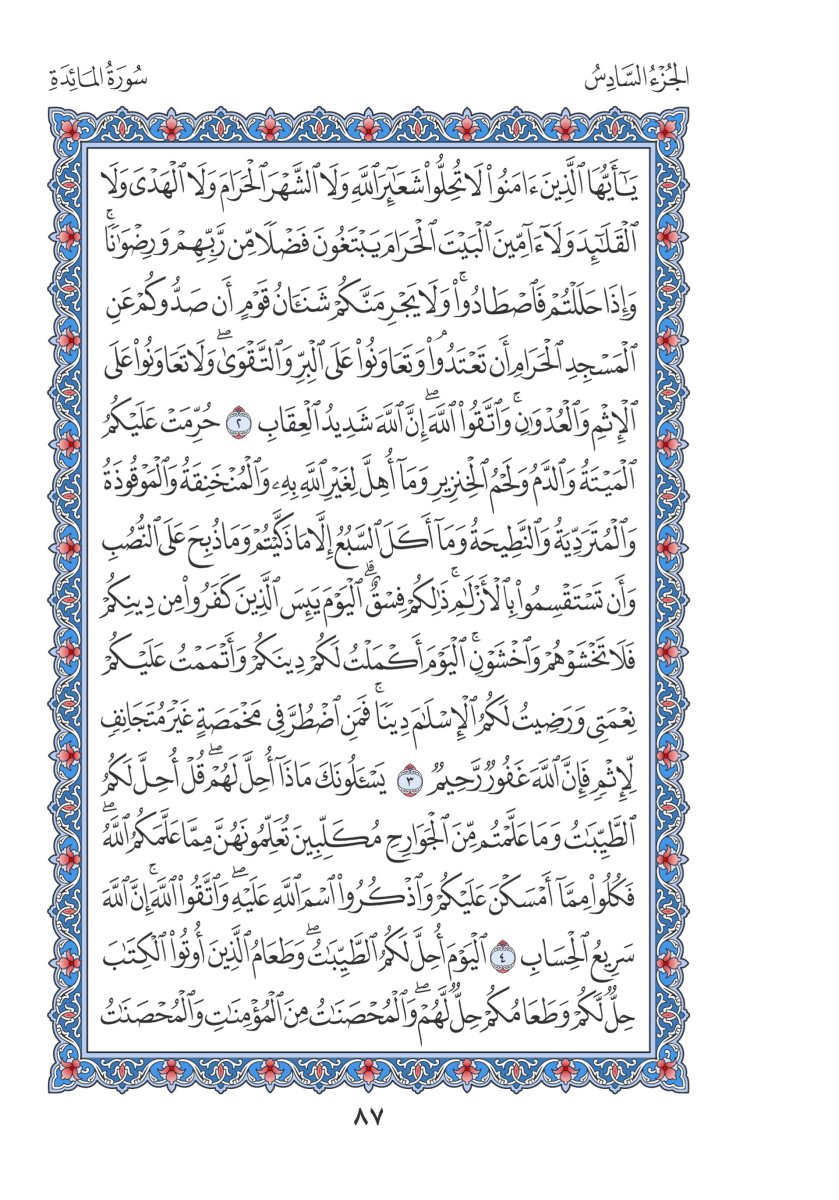 الجُزْءُ السَّادِسُ
سُورَةُ المَائِدَةِ
يَـٰٓأَيُّهَا ٱلَّذِينَ ءَامَنُوا۟ لَا تُحِلُّوا۟ شَعَـٰٓئِرَ ٱللَّهِ وَلَا ٱلشَّهْرَ ٱلْحَرَامَ وَلَا ٱلْهَدْىَ وَلَا
ٱلْقَلَـٰٓئِدَ وَلَآ ءَآمِّينَ ٱلْبَيْتَ ٱلْحَرَامَ يَبْتَغُونَ فَضْلًا مِّن رَّبِّهِمْ وَرِضْوَٰنًا ۚ
وَإِذَا حَلَلْتُمْ فَٱصْطَادُوا۟ ۚ وَلَا يَجْرِمَنَّكُمْ شَنَـَٔانُ قَوْمٍ أَن صَدُّوكُمْ عَنِ
ٱلْمَسْجِدِ ٱلْحَرَامِ أَن تَعْتَدُوا۟ ۘ وَتَعَاوَنُوا۟ عَلَى ٱلْبِرِّ وَٱلتَّقْوَىٰ ۖ وَلَا تَعَاوَنُوا۟ عَلَى
ٱلْإِثْمِ وَٱلْعُدْوَٰنِ ۚ وَٱتَّقُوا۟ ٱللَّهَ ۖ إِنَّ ٱللَّهَ شَدِيدُ ٱلْعِقَابِ ٢ حُرِّمَتْ عَلَيْكُمُ
ٱلْمَيْتَةُ وَٱلدَّمُ وَلَحْمُ ٱلْخِنزِيرِ وَمَآ أُهِلَّ لِغَيْرِ ٱللَّهِ بِهِۦ وَٱلْمُنْخَنِقَةُ وَٱلْمَوْقُوذَةُ
وَٱلْمُتَرَدِّيَةُ وَٱلنَّطِيحَةُ وَمَآ أَكَلَ ٱلسَّبُعُ إِلَّا مَا ذَكَّيْتُمْ وَمَا ذُبِحَ عَلَى ٱلنُّصُبِ
وَأَن تَسْتَقْسِمُوا۟ بِٱلْأَزْلَـٰمِ ۚ ذَٰلِكُمْ فِسْقٌ ۗ ٱلْيَوْمَ يَئِسَ ٱلَّذِينَ كَفَرُوا۟ مِن دِينِكُمْ
فَلَا تَخْشَوْهُمْ وَٱخْشَوْنِ ۚ ٱلْيَوْمَ أَكْمَلْتُ لَكُمْ دِينَكُمْ وَأَتْمَمْتُ عَلَيْكُمْ
نِعْمَتِى وَرَضِيتُ لَكُمُ ٱلْإِسْلَـٰمَ دِينًا ۚ فَمَنِ ٱضْطُرَّ فِى مَخْمَصَةٍ غَيْرَ مُتَجَانِفٍ
لِّإِثْمٍ فَإِنَّ ٱللَّهَ غَفُورٌ رَّحِيمٌ ٣ يَسْـَٔلُونَكَ مَاذَآ أُحِلَّ لَهُمْ ۖ قُلْ أُحِلَّ لَكُمُ
ٱلطَّيِّبَـٰتُ وَمَا عَلَّمْتُم مِّنَ ٱلْجَوَارِحِ مُكَلِّبِينَ تُعَلِّمُونَهُنَّ مِمَّا عَلَّمَكُمُ ٱللَّهُ ۖ
فَكُلُوا۟ مِمَّآ أَمْسَكْنَ عَلَيْكُمْ وَٱذْكُرُوا۟ ٱسْمَ ٱللَّهِ عَلَيْهِ ۖ وَٱتَّقُوا۟ ٱللَّهَ ۚ إِنَّ ٱللَّهَ
سَرِيعُ ٱلْحِسَابِ ٤ ٱلْيَوْمَ أُحِلَّ لَكُمُ ٱلطَّيِّبَـٰتُ ۖ وَطَعَامُ ٱلَّذِينَ أُوتُوا۟ ٱلْكِتَـٰبَ
حِلٌّ لَّكُمْ وَطَعَامُكُمْ حِلٌّ لَّهُمْ ۖ وَٱلْمُحْصَنَـٰتُ مِنَ ٱلْمُؤْمِنَـٰتِ وَٱلْمُحْصَنَـٰتُ
٨٧